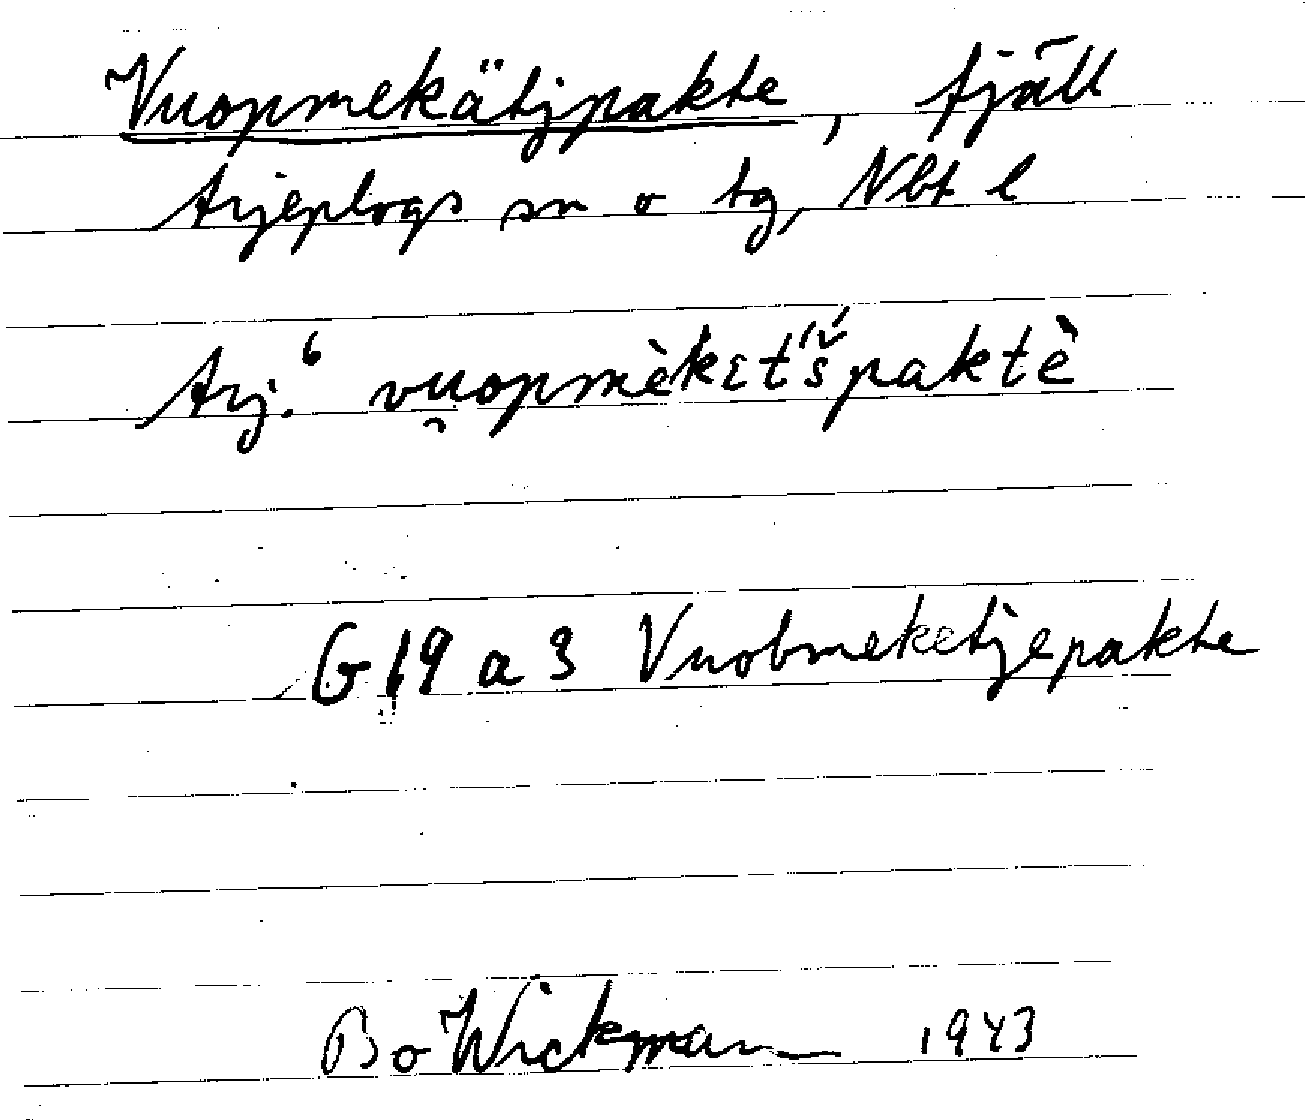 Vuopmekätjpakte, fjäll
Arjeplogs sn o tg, Nbt l
Arj.⁶ vu̯opmèkɛt'š́paktè
G 19 a 3 Vuobmeketjepakte
Bo Wickman 1943